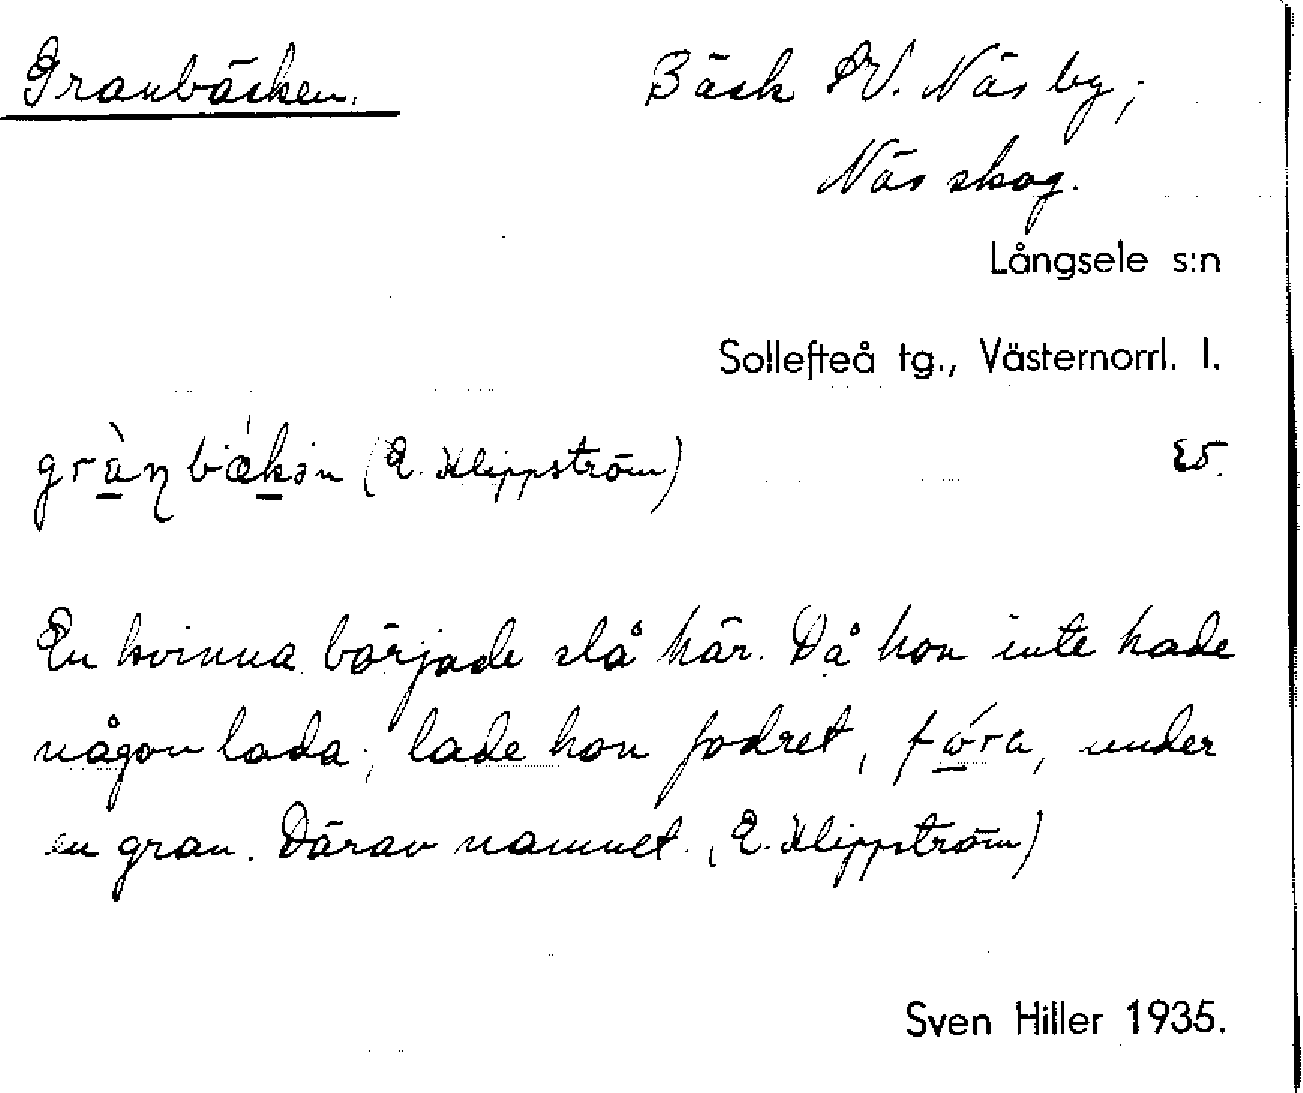 Granbäcken. Bäck SV. Näs by;
Näs skog.
Långsele s:n
Sollefteå tg., Västernorrl. l.
grànbǽkən (E. Klippström)
En kvinna började slå här. Då hon inte hade
någon lada, lade hon fodret, fóra, under
en gran. Därav namnet. (E. Klippström)
Sven Hiller 1935.